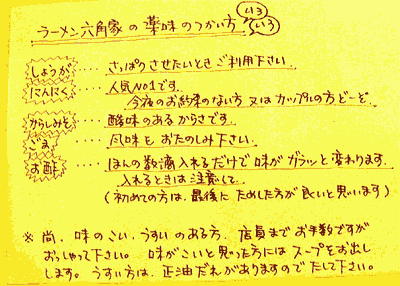 ラーメン六角家の薬味のつかい方 いろいろ
しょうが ････ さっぱりさせたいとき ご利用下さい
にんにく ････ 人気NO1です。
今夜のお約束のない方 又は カップルの方どーぞ
からしみそ ････ 酸味のあるからさです。
ごま ････ 風味をおたのしみ下さい。
お酢 ････ ほんの数滴入れるだけで味がガラッと変わります。
入れるときは注意して。
(初めての方は、最後にためした方が良いと思います)
※ 尚、味のこい、うすいのある方、店員までお手数ですが
おっしゃって下さい。味がこいと思った方にはスープをお出し
します。うすい方は、正油だれがありますのでたして下さい。